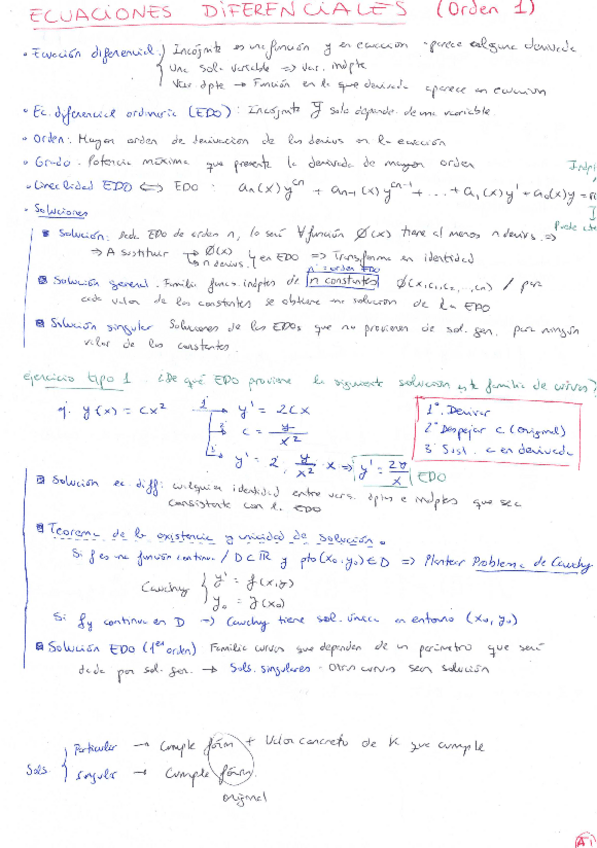 ECUACIONES DIFERENCIALES (Orden 1)
• Ecuación diferencial { Incógnita es una función y en ecuación aparece alguna derivada
Una sola variable => var. indpte
Var dpte → Función en la que derivada aparece en ecuacion
• Ec. diferencial ordinaria (EDO): Incógnita y solo depende de una variable.
• Orden: Mayor orden de derivación de las derivs en la ecuación
• Grado. Potencia máxima que presente la derivada de mayor orden
• Linealidad EDO <=> EDO: aₙ(x)y⁽ⁿ + aₙ₋₁(x)y⁽ⁿ⁻¹ + ... + a₁(x)y' + a₀(x)y =
• Soluciones
Solución: dada EDO de orden n, lo será ∀ función Ø(x) tiene al menos n derivs. =>
=> A sustituir → Ø(x) n derivs. } en EDO => Transforma en identidad
n = orden EDO
Solución general. Familia funcs. indptes de n constantes Ø(x,c₁,c₂,...,cn) / para
cada valor de las constantes se obtiene una solucion de la EDO
Solución singular Soluciones de las EDOs que no provienen de sol. gen. para ningún
valor de las constantes.
ejercicio tipo 1. ¿De qué EDO proviene la siguiente solución y/o familia de curvas?
ej. y(x) = cx² 1 y' = 2cx
2 c = y/x²
3 y' = 2 · y/x² · x => y' = 2y/x EDO
1º. Derivar
2º Despejar c (original)
3º Sust. c en derivada
Solución ec. diff: cualquier identidad entre vars. dptes e indptes que sea
consistente con la EDO
Teorema de la existencia y unicidad de solución.
Si f es una función continua / D⊂ℝ y pto (x₀,y₀)∈D => Plantear Problema de Cauchy
Cauchy { y' = f(x,y)
y₀ = y(x₀)
Si fy continua en D → Cauchy tiene sol. única en entorno (x₀, y₀)
Solución EDO (1er orden) Familia curvas que dependen de un parámetro que será
dada por sol. gen. → Sols. singulares - Otras curvas sean solución
Sols. { Particular → Cumple fórm + Valor concreto de K que cumple
Singular → Cumple fórm.
original